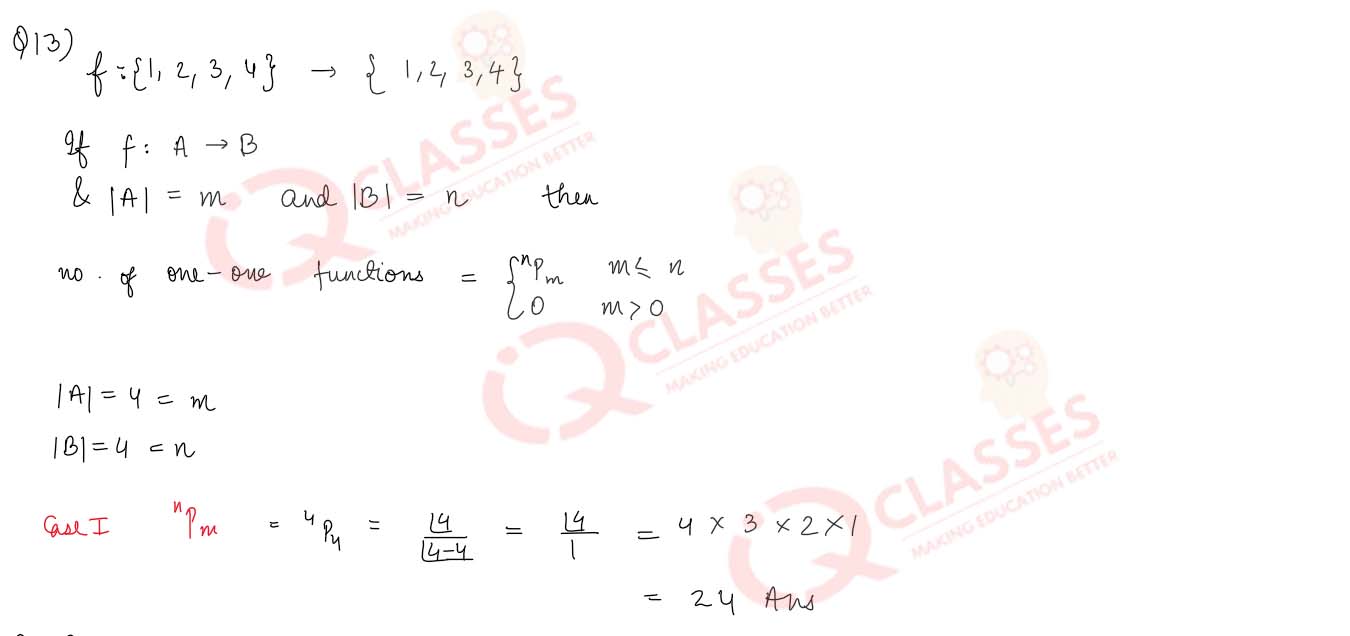 Q13)
f:{1, 2, 3, 4} → { 1, 2, 3, 4}
If f: A → B
& |A| = m and |B| = n then
no. of one-one functions = { ⁿPₘ m ≤ n
0 m > 0
|A| = 4 = m
|B| = 4 = n
Case I ⁿPₘ = ⁴P₄ = ⌊4 / ⌊4-4 = ⌊4 / 1 = 4 × 3 × 2 × 1
= 24 Ans
iQ CLASSES
MAKING EDUCATION BETTER
iQ CLASSES
MAKING EDUCATION BETTER
iQ CLASSES
MAKING EDUCATION BETTER